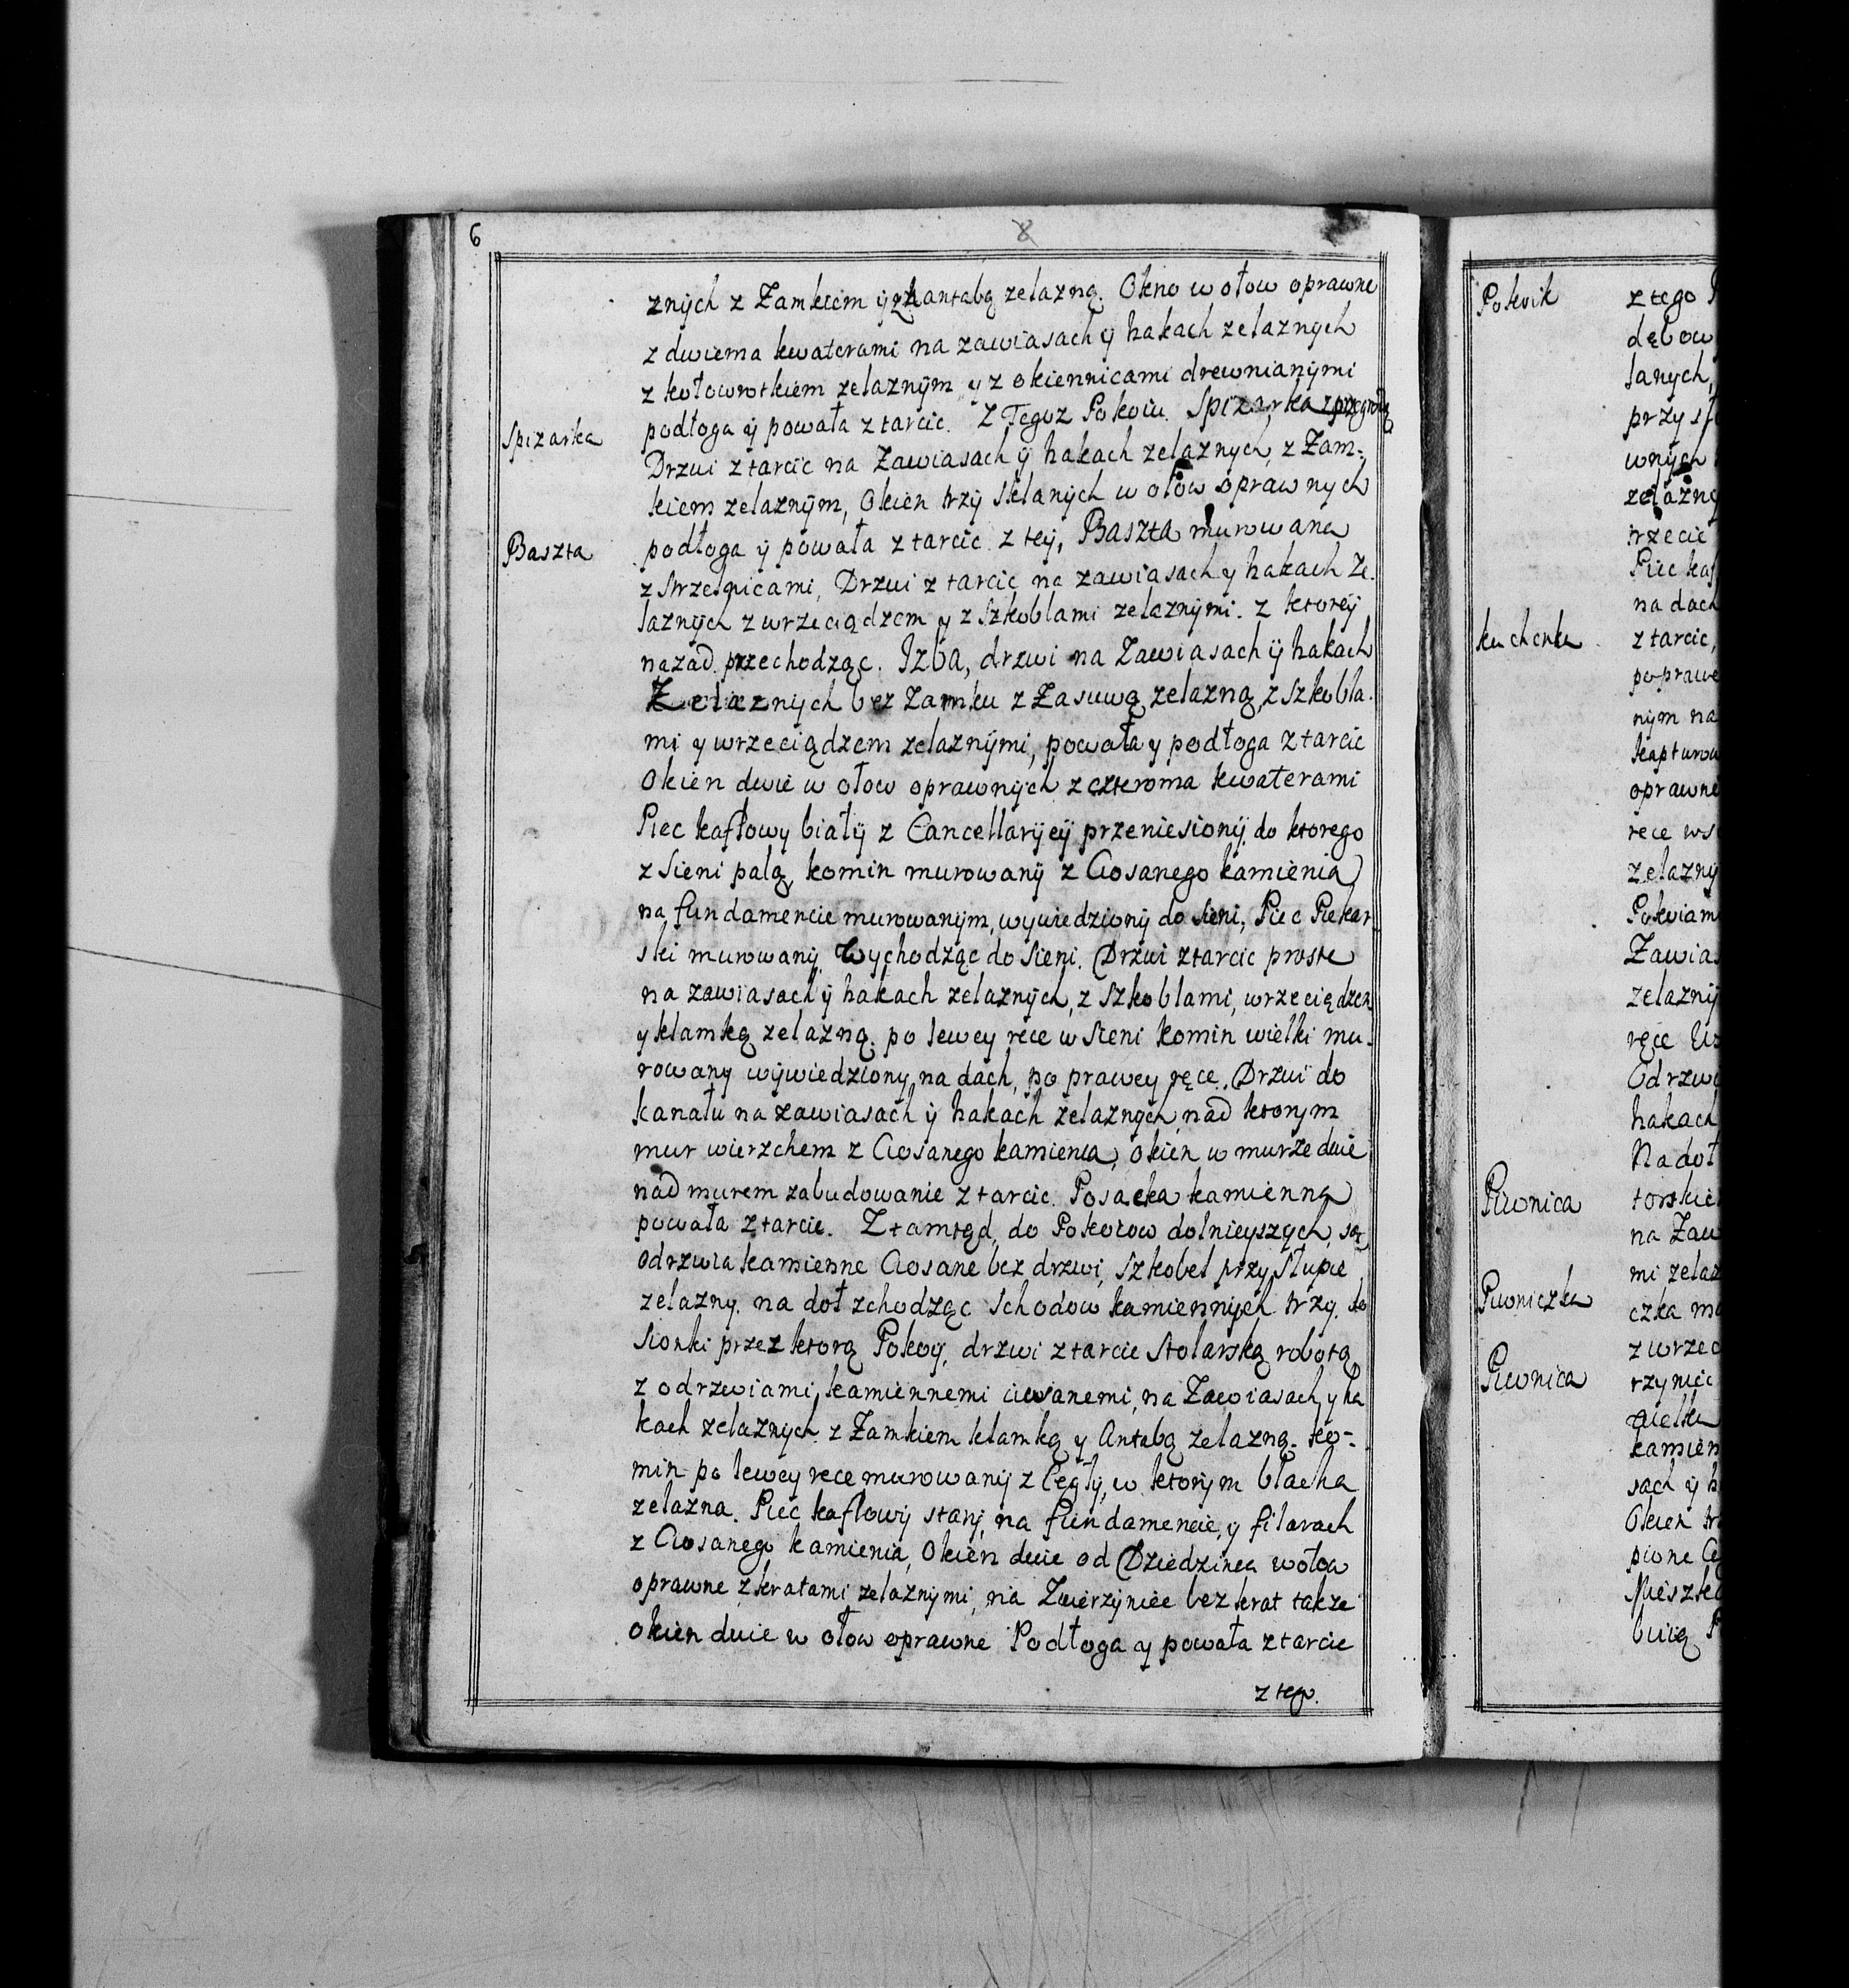 6
8
znych z Zamkiem ÿ z hantabą zelazną. Okno w ołow oprawne
z dwiema kwaterami na zawiasach ÿ hakach zelaznych
z kołowrotkiem zelaznÿm y z okiennicami drewnianÿmi
Spizarka
podłoga ÿ powała z tarcic. Z Tegoz Pokoiu Spizarka
Drzwi z tarcic na Zawiasach ÿ hakach zelaznych, z Zam-
kiem zelaznÿm, Okien trzÿ sklanÿch w ołow oprawnych
Baszta
podłoga ÿ powała z tarcic z teÿ, Baszta murowana
z Strzelnicami, Drzwi z tarcic na zawiasach y hakach Ze-
laznÿch z wrzeciądzem y z Szkoblami zelaznÿmi. z ktoreÿ
nazad przechodząc. Izba, drzwi na Zawiasach ÿ hakach
Zelaznych bez Zamku z Zasuwą zelazną, z Szkobla-
mi y wrzeciądzem zelaznÿmi, powała y podłoga z tarcic
Okien dwie w ołow oprawnÿch z czteroma kwaterami
Piec kaflowy białÿ z Cancellarÿeÿ przeniesionÿ do ktorego
z Sieni palą, komin murowanÿ z Ciosanego kamienia
na fundamencie murowanÿm, wywiedzionÿ do Sieni, Piec Piekar-
ski murowanÿ. Wychodząc do Sieni. Drzwi z tarcic proste
na zawiasach ÿ hakach zelaznÿch, z Szkoblami, wrzeciądzem
y klamką zelazną. po lewey rece w Sieni komin wielki mu-
rowany wÿwiedziony na dach, po prawey ręce. Drzwi do
kanału na zawiasach ÿ hakach zelaznych, nad ktorym
mur wierzchem z Ciosanego kamienia, okien w murze dwie
nad murem zabudowanie z tarcic. Posacka kamienna
powała z tarcic. Z tamtąd, do Pokoiow dolnieyszych, są
odrzwia kamienne Ciosane bez drzwi, Szkobel przy Słupie
zelazny. na doł zchodząc Schodow kamiennÿch trzy. do
Sionki przez ktorą Pokoÿ, drzwi z tarcic Stolarską robotą
z odrzwiami kamiennemi ciosanemi, na Zawiasach y ha
kach zelaznych z Zamkiem klamką y Antabą zelazną. ko-
min po lewey rece murowanÿ z Cegłÿ, w ktorÿm blacha
zelazna. Piec kaflowÿ starÿ na fundamencie, y filarach
z Ciosanego kamienia, Okien dwie od Dziedzinca w ołow
oprawne z kratami zelaznÿmi, na Zwierzyniec bez krat takze
okien dwie w ołow oprawne Podłoga y powała z tarcic
z tego.
Pokoik
z tego
dębow
lanych,
przy
wnÿch
zelazne
trzecie
Piec kaf
na dach
kuchenka
z tarcic,
poprawe
nÿm na
kapturow
oprawne
rece
zelaznÿ
Pokoiam
Zawias
zelaznÿ
ręce
Odrzwi
hakach
Na doł
Piwnica
torskie
na Zaw
mi zelaz
Piwniczka
czka mu
z wrzec
Piwnica
rzyniec
wielka
kamien
sach ÿ h
Okien
pione
Mieszka